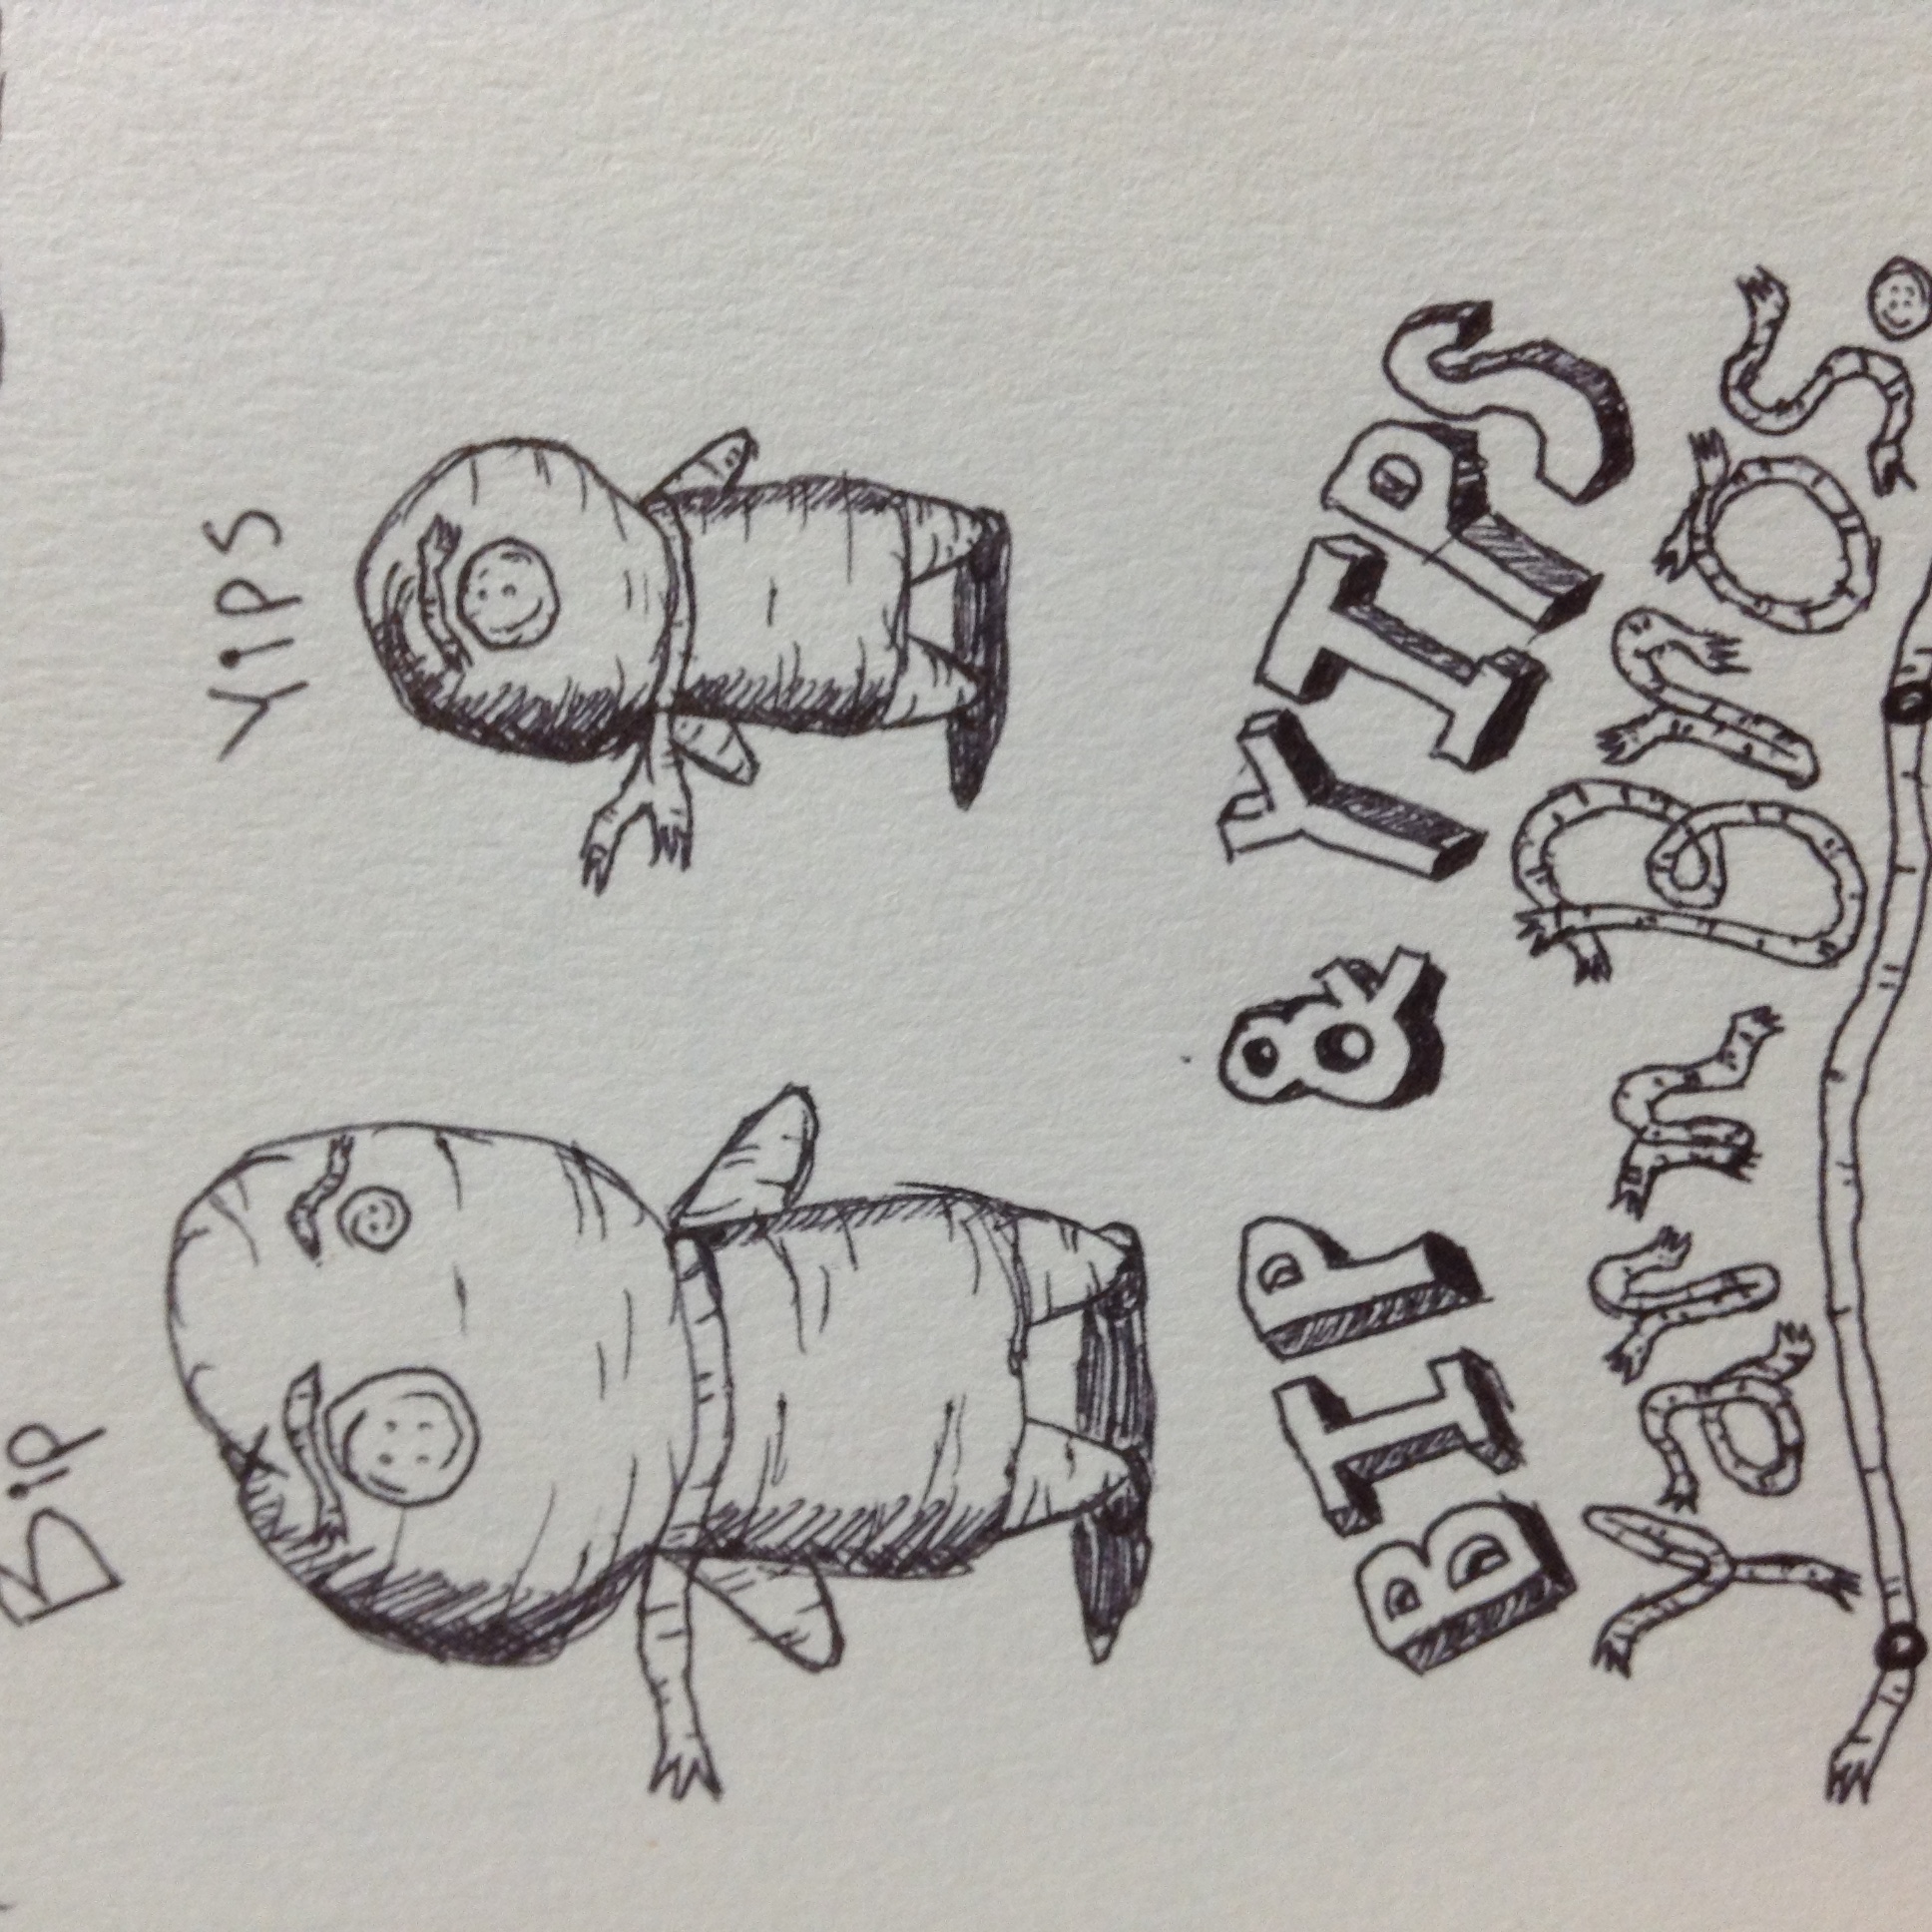 Bip
Yips
BIP & YIPS
Yarn Bros.